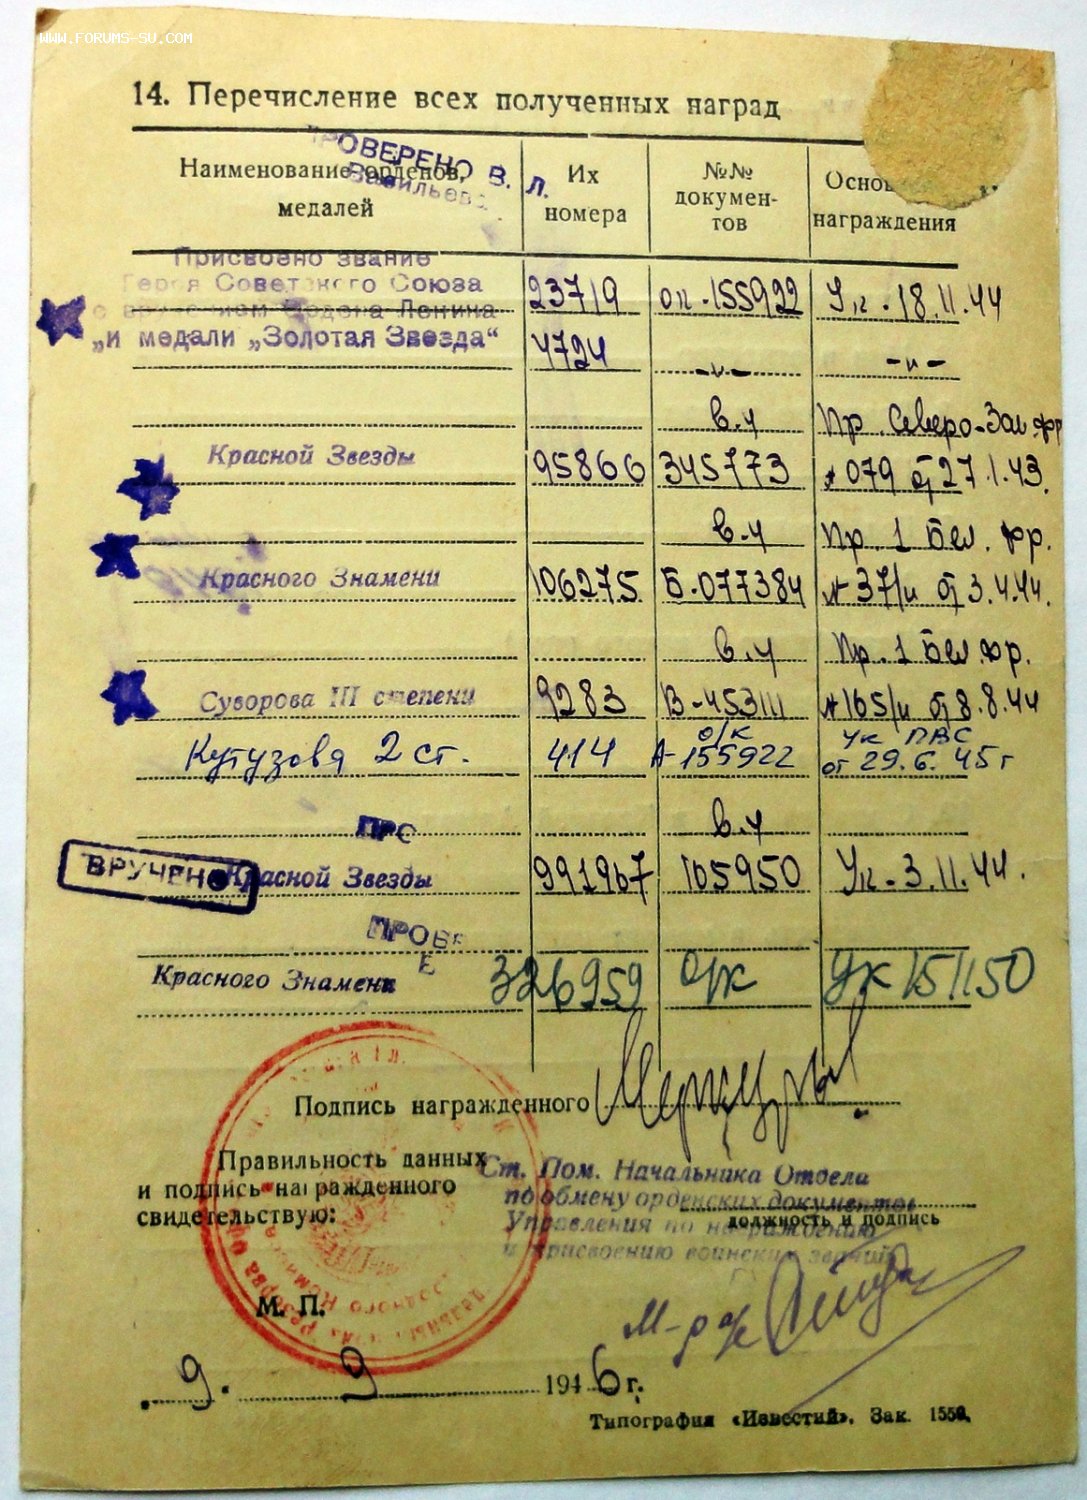 www.forums-su.com
14. Перечисление всех полученных наград
ПРОВЕРЕНО В. Л.
Наименование орденов, медалей
Их номера
№№ докумен-тов
награждения
Присвоено звание
Героя Советского Союза
с вручением Ордена Ленина 23719 ок-155922 Ук. 18.11.44
„и медали „Золотая Звезда“ 4724 -„- -„-
в.ч Пр. Северо-Зап. фр
Красной Звезды 95866 345773 № 079 от 27.1.43.
в.ч Пр. 1 Бел. фр.
Красного Знамени 106275 Б-077384 № 37/н от 3.4.44.
в.ч Пр. 1 Бел. фр.
Суворова III степени 9283 В-453111 № 165/н от 8.8.44
Кутузова 2 ст. 414 о/к А-155922 Ук ПВС от 29.6.45 г
ПРО
в.ч
ВРУЧЕНО
Красной Звезды 991967 105950 Ук. 3.11.44.
ПРОВЕ
Красного Знамени 326959 о/к Ук 15/1 50
Подпись награжденного
Правильность данных
и подпись награжденного
свидетельствую:
Ст. Пом. Начальника Отдела
по обмену орденских документов
Управления по награждению
и присвоению воинских званий
должность и подпись
М. П.
М-р
9. 9 1946 г.
Типография «Известий». Зак. 1550.